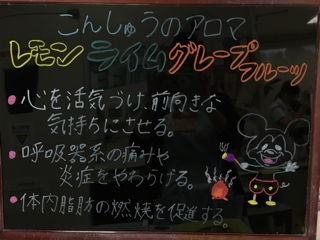 こんしゅうのアロマ
レモン ライム グレープフルーツ
心を活気づけ、前向きな
気持ちにさせる。
呼吸器系の痛みや
炎症をやわらげる。
体内脂肪の燃焼を促進する。